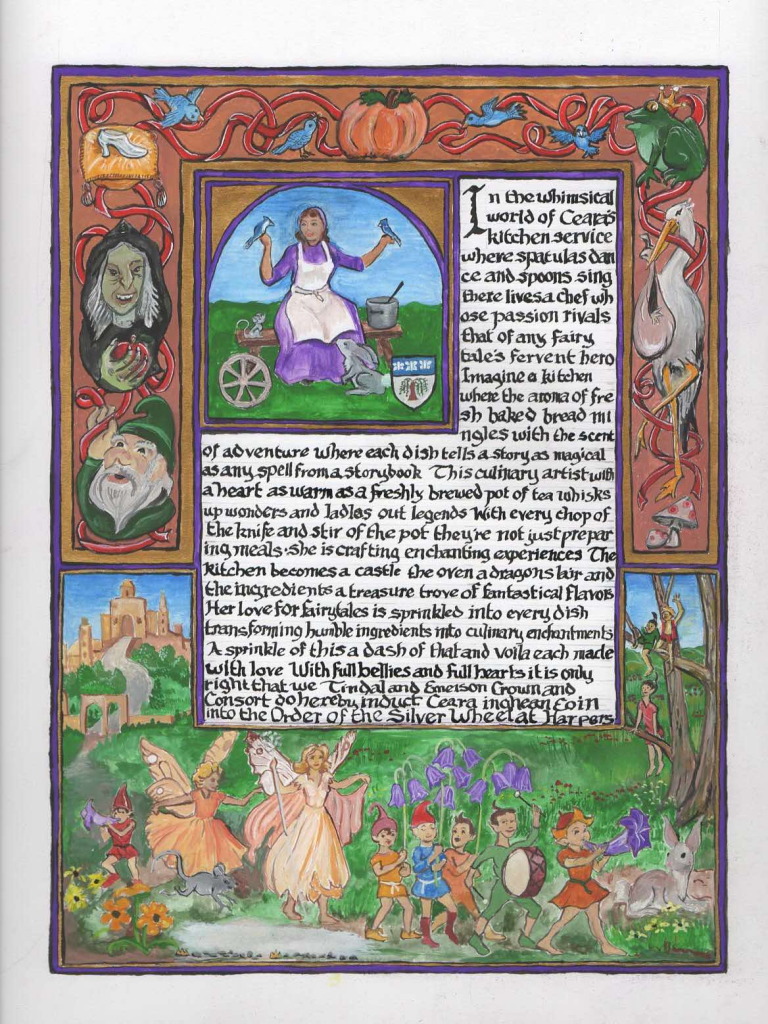 In the whimsical
world of Ceara's
kitchen service
where spatulas dan
ce and spoons sing
there lives a chef wh
ose passion rivals
that of any fairy
tale's fervent hero
Imagine a kitchen
where the aroma of fre
sh baked bread mi
ngles with the scent
of adventure where each dish tells a story as magical
as any spell from a storybook This culinary artist with
a heart as warm as a freshly brewed pot of tea whisks
up wonders and ladles out legends With every chop of
the knife and stir of the pot they're not just prepar
ing meals she is crafting enchanting experiences The
kitchen becomes a castle the oven a dragons lair and
the ingredients a treasure trove of fantastical flavors
Her love for fairytales is sprinkled into every dish
transforming humble ingredients into culinary enchantments
A sprinkle of this a dash of that and voila each made
with love With full bellies and full hearts it is only
right that we Tindal and Emerson Crown and
Consort do hereby induct Ceara inghean Eoin
into the Order of the Silver Wheel at Harpers